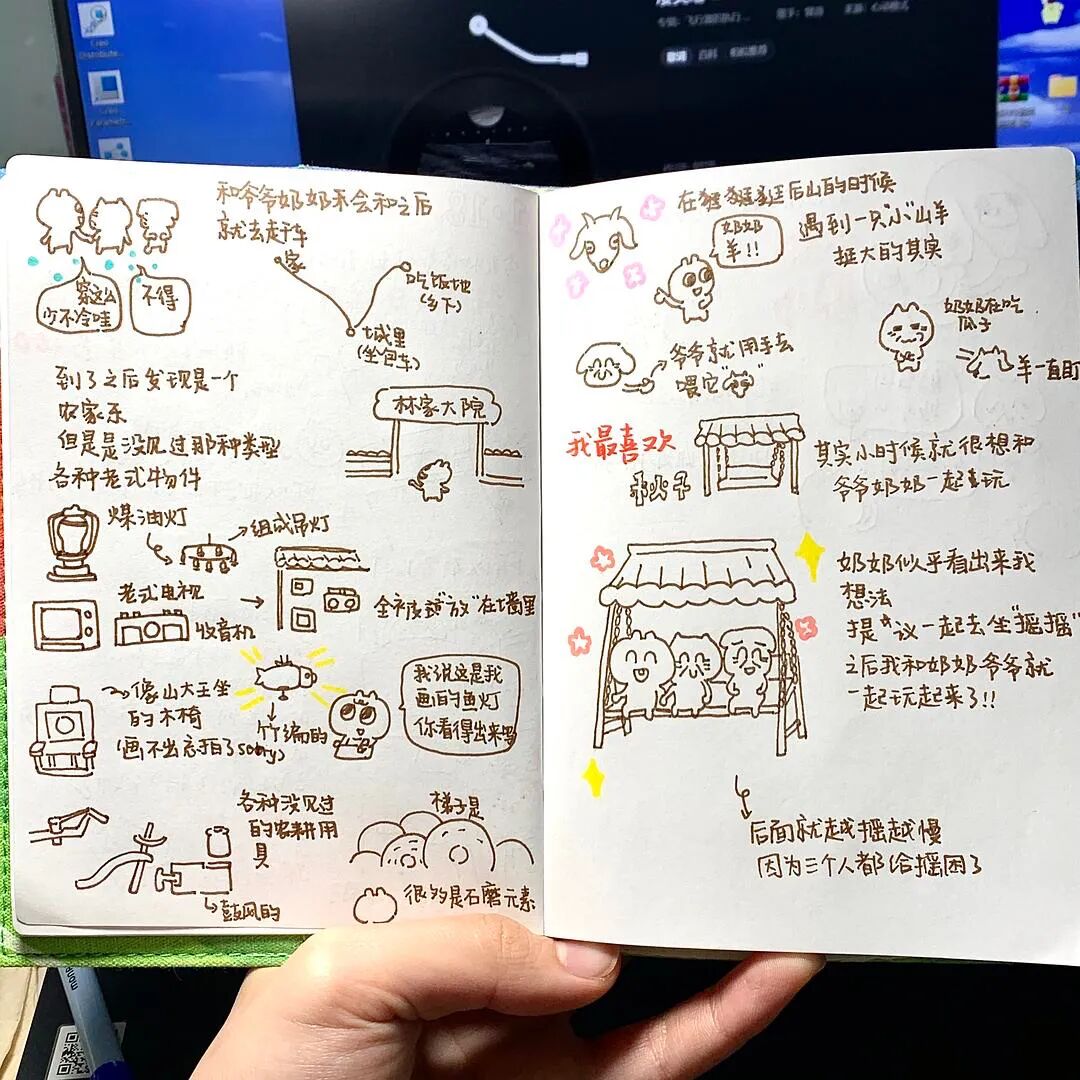 和爷爷奶奶来会和之后
就去赶车
穿这么
少不冷哇
不得
家
吃饭地
(乡下)
城里
(坐包车)
到了之后发现是一个
农家乐
但是是没见过那种类型
各种老式物件
林家大院
煤油灯
组成吊灯
老式电视
收音机
全被镶"放"在墙里
像山大王坐
的木椅
(画不出忘拍了sorry)
竹编的
我说这是我
画的鱼灯
你看得出来吗
各种没见过
的农耕用
具
鼓风的
梯子是
很多是石磨元素
在猩猩逛后山的时候
奶奶
羊!!
遇到一只"小"山羊
挺大的其实
爷爷就用手去
喂它
奶奶在吃
瓜子
羊一直盯
我最喜欢
秋千
其实小时候就很想和
爷爷奶奶一起玩
奶奶似乎看出来我
想法
提议一起去坐"摇摇"
之后我和奶奶爷爷就
一起玩起来了!!
后面就越摇越慢
因为三个人都给摇困了